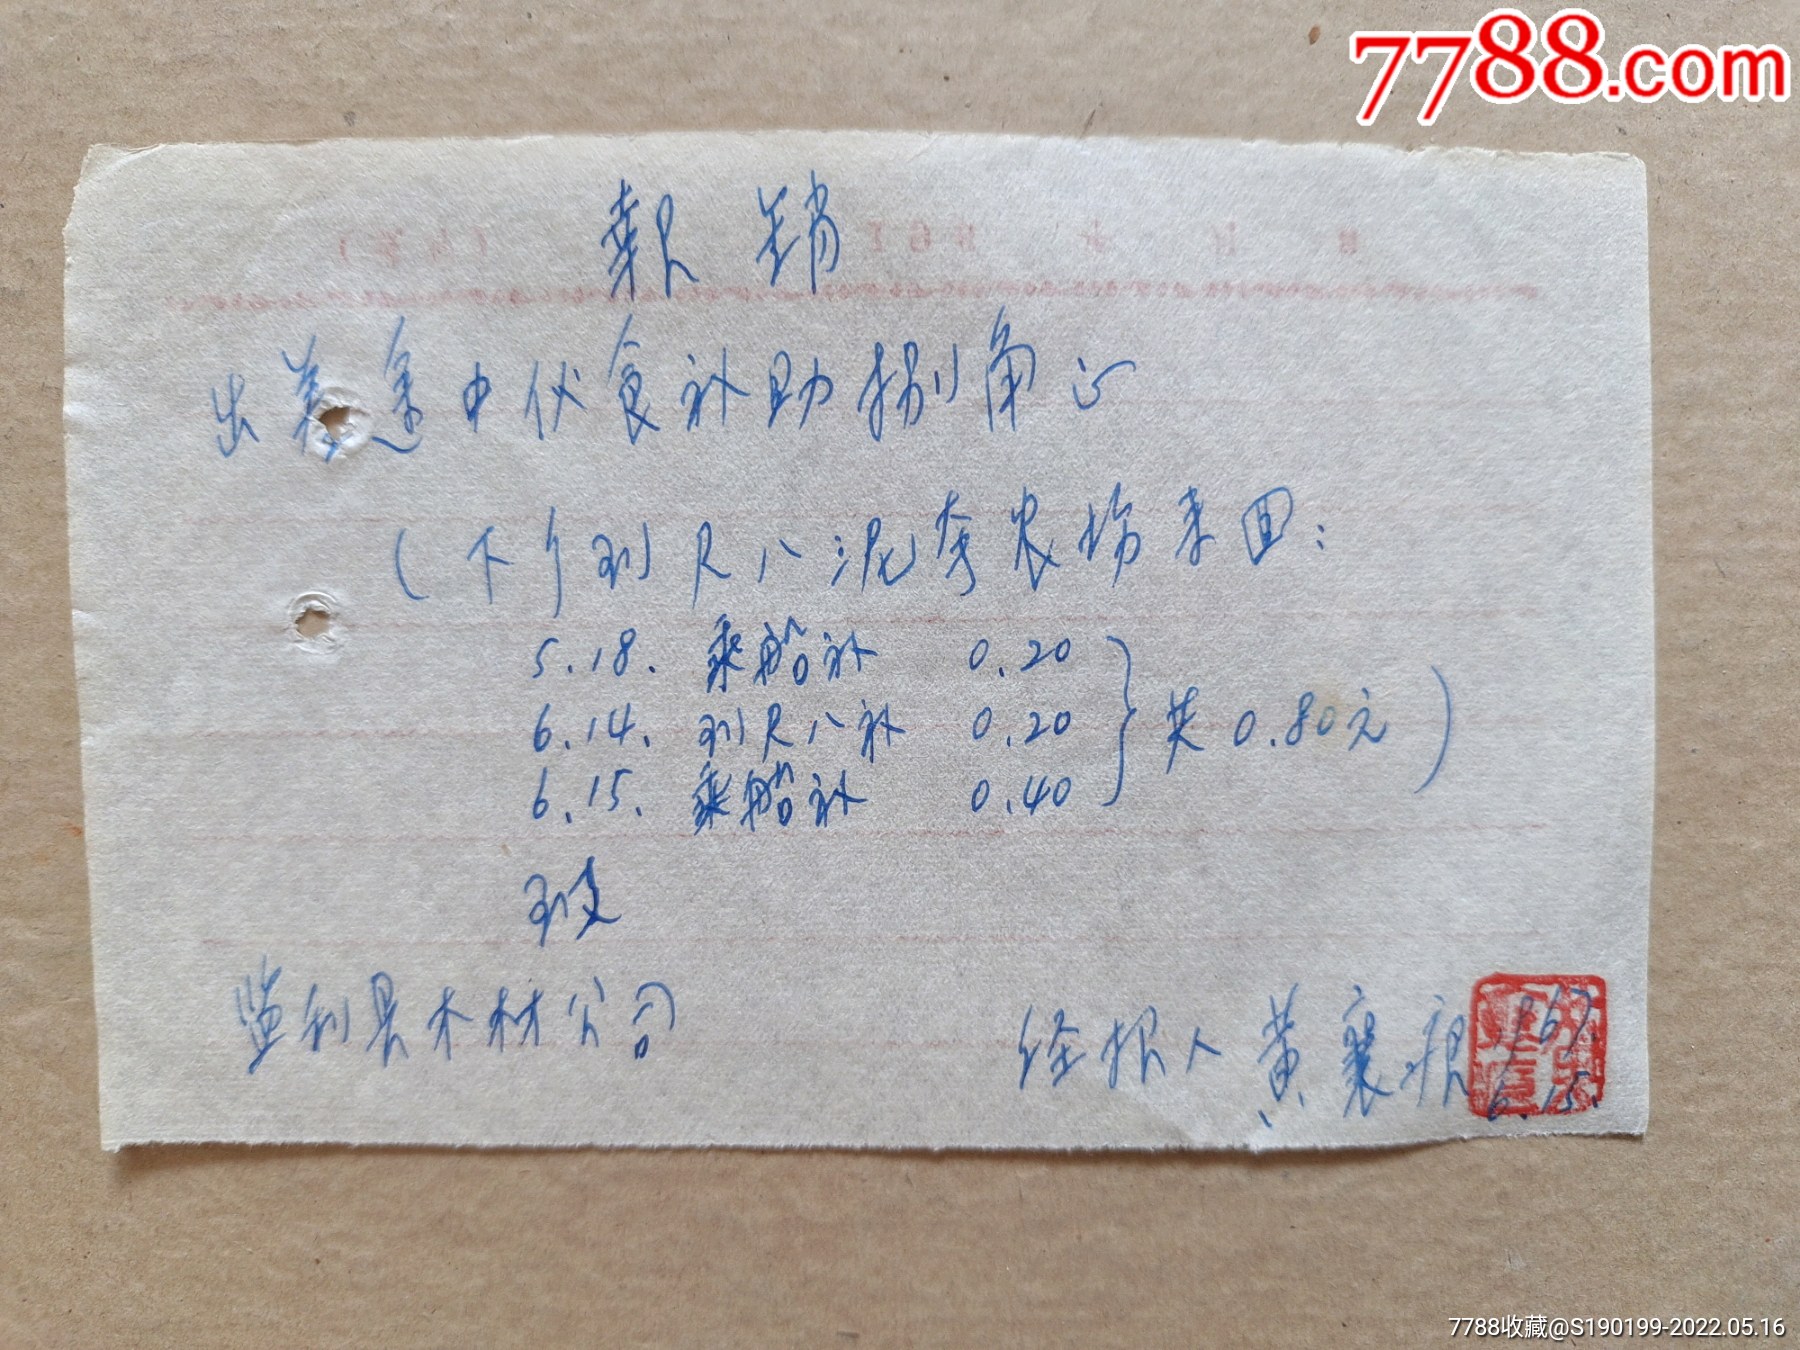 7788.com
報 銷
出差途中伙食补助捌角正
(下乡到尺八泥套农场来回:
5.18. 乘船补 0.20
6.14. 到尺八补 0.20
6.15. 乘船补 0.40
共 0.80元)
致
监利县木材公司
经报人 黄襄
67.
6.15.
7788收藏@S190199-2022.05.16